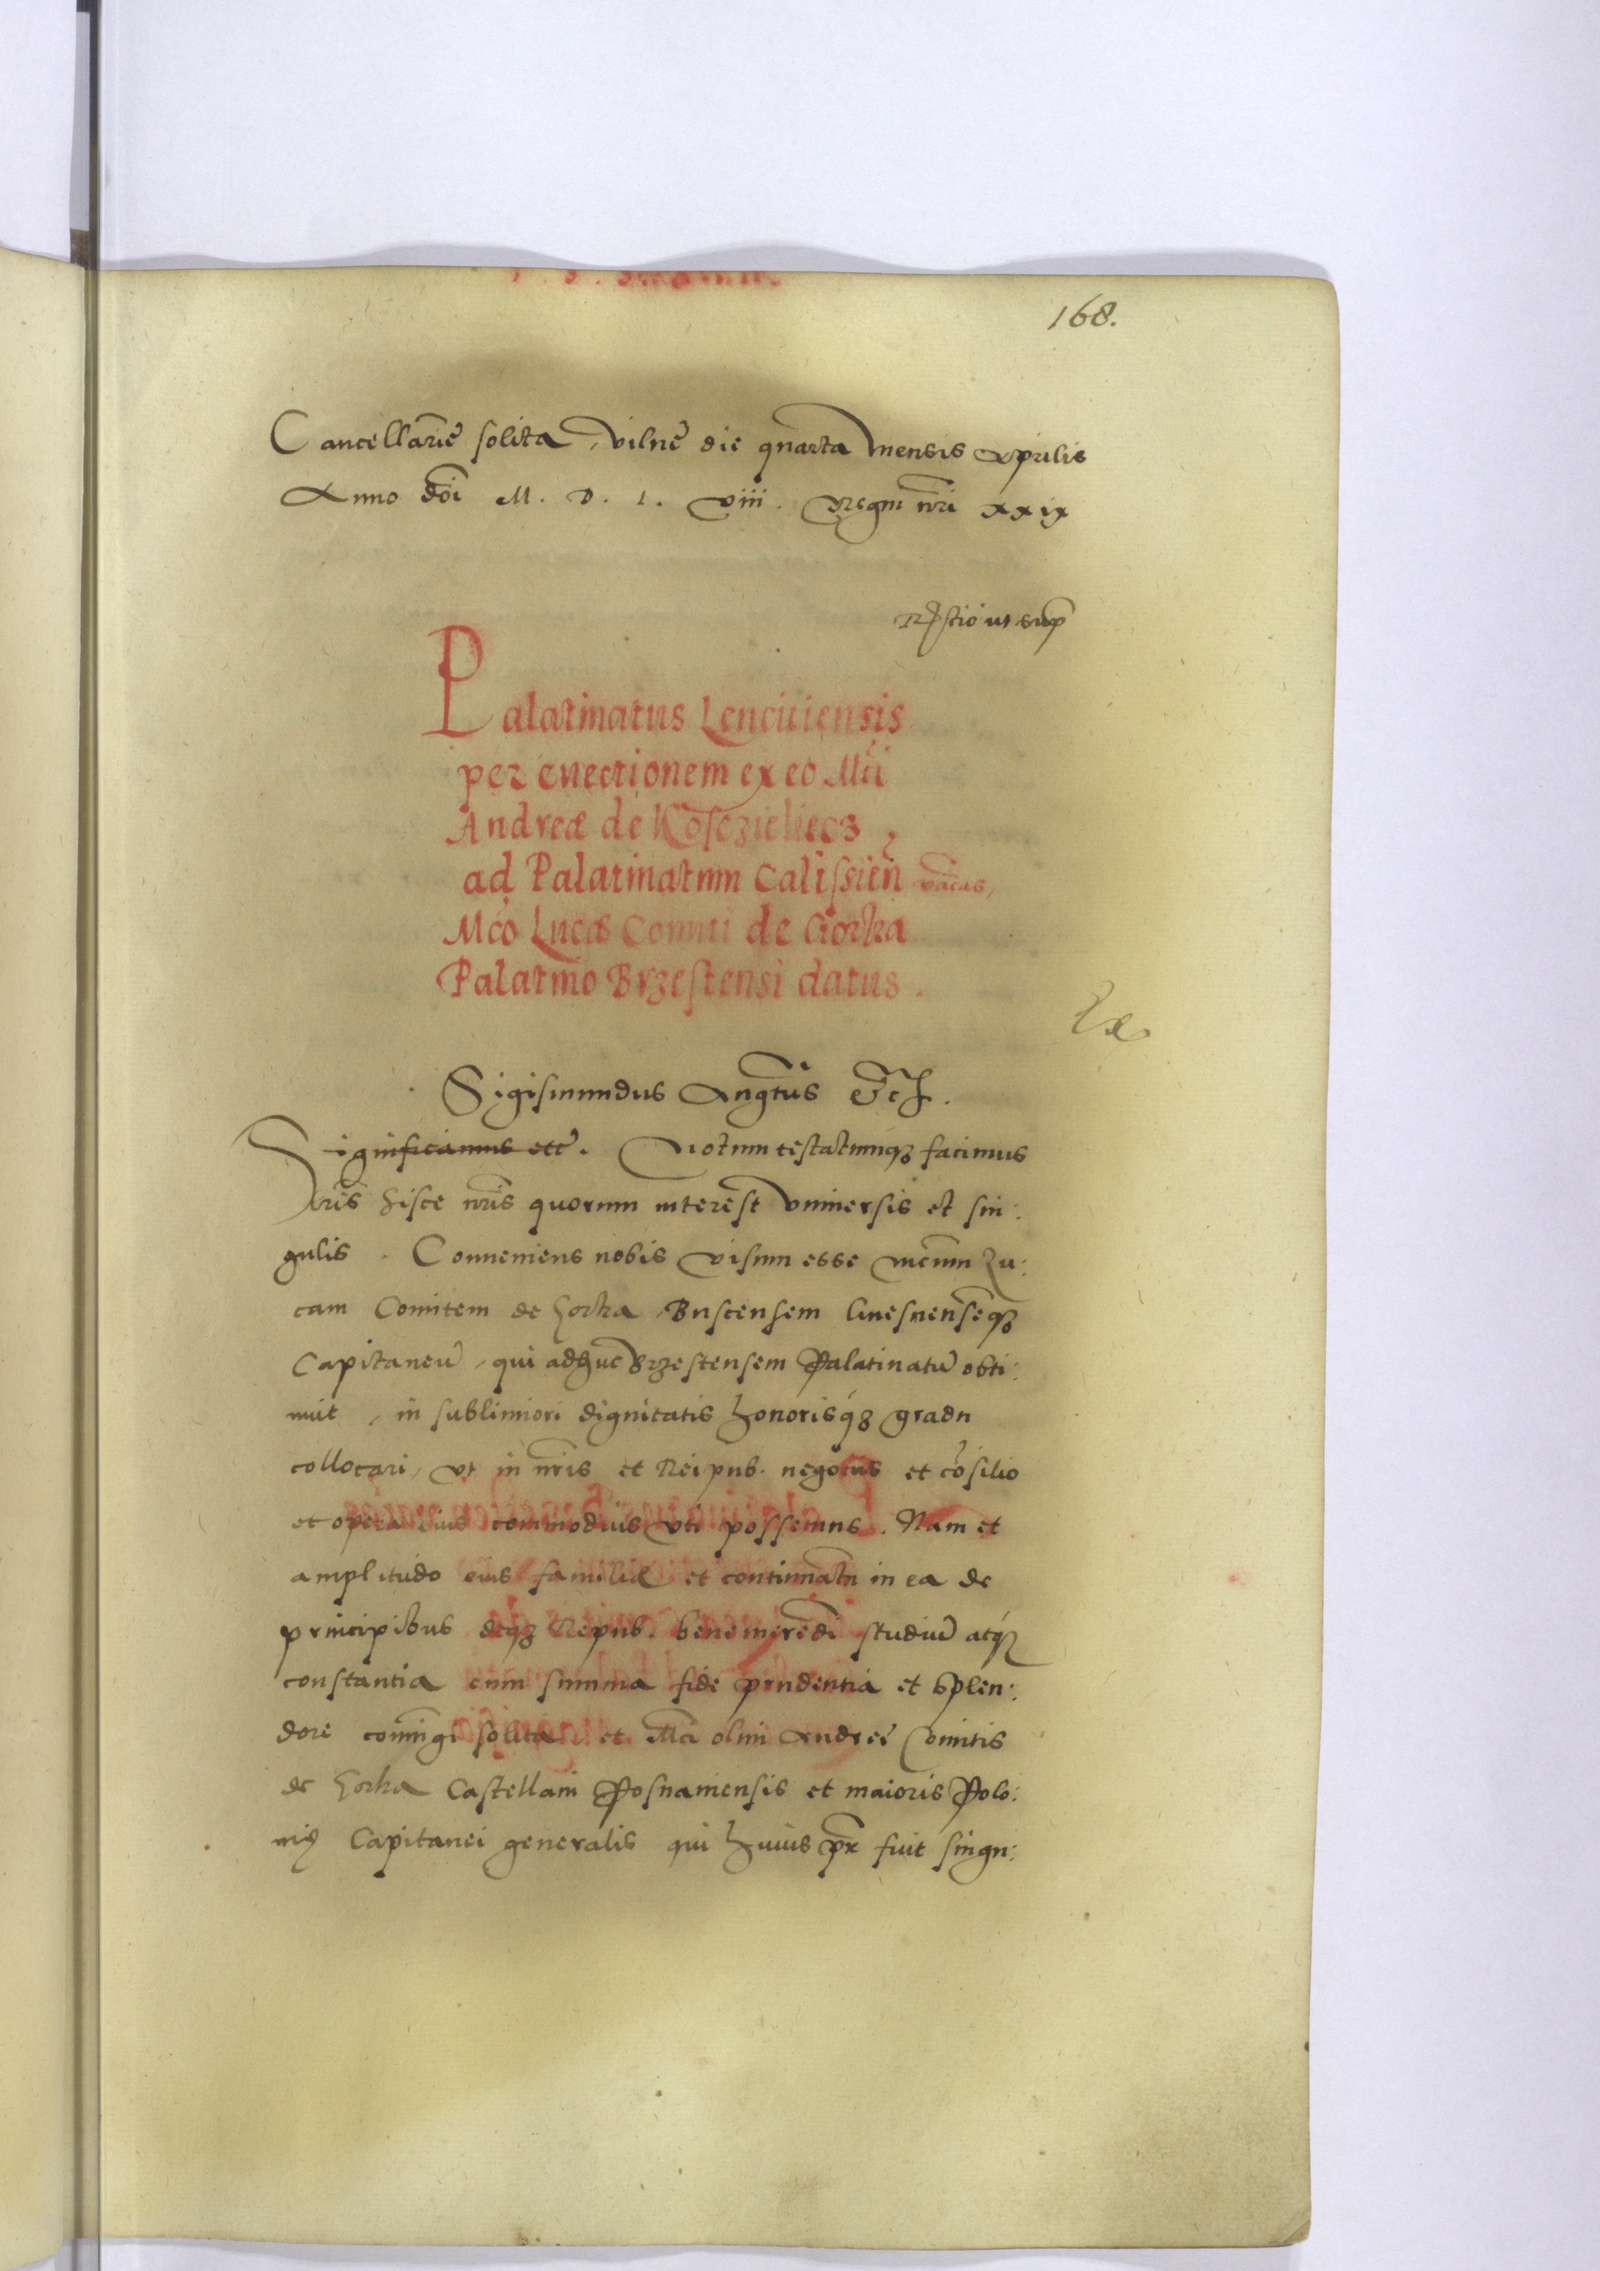 168.
Cancellarie solita, Vilne die quarta mensis Aprilis
Anno doi M. D. L. viii. Regni nri xxix
Rsctio ut sup
Palatinatus Lenciciensis
per euectionem ex eo Mci
Andreæ de Kosczieliecz,
ad Palatinatum Calissien vacas,
Mco Lucæ Comiti de Gorka
Palatino Brzestensi datus.
Sigismundus Augtus etc.
Significamus etc. Notum testatumque facimus
lris hisce nris quorum interest vniuersis et sin:
gulis. Conueniens nobis visum esse mcum Lu:
cam Comitem de Gorka, Buscensem Gnesnensemque
Capitaneu, qui adhuc Brzestensem Palatinatu obti:
nuit, in sublimiori dignitatis honorisque gradu
collocari, vt in nris et Reipub. negotiis et cosilio
et opera eius commodius vti possemus. Nam et
amplitudo eius familiæ et continuatu in ea de
principibus deque Repub. bene meredi studiu atque
constantia cum summa fide prudentia et splen:
dore coniungi solita, et Mci olim Andree Comitis
de Gorka Castellani Posnaniensis et maioris Polo:
nię Capitanei generalis qui huius pr fuit singu: